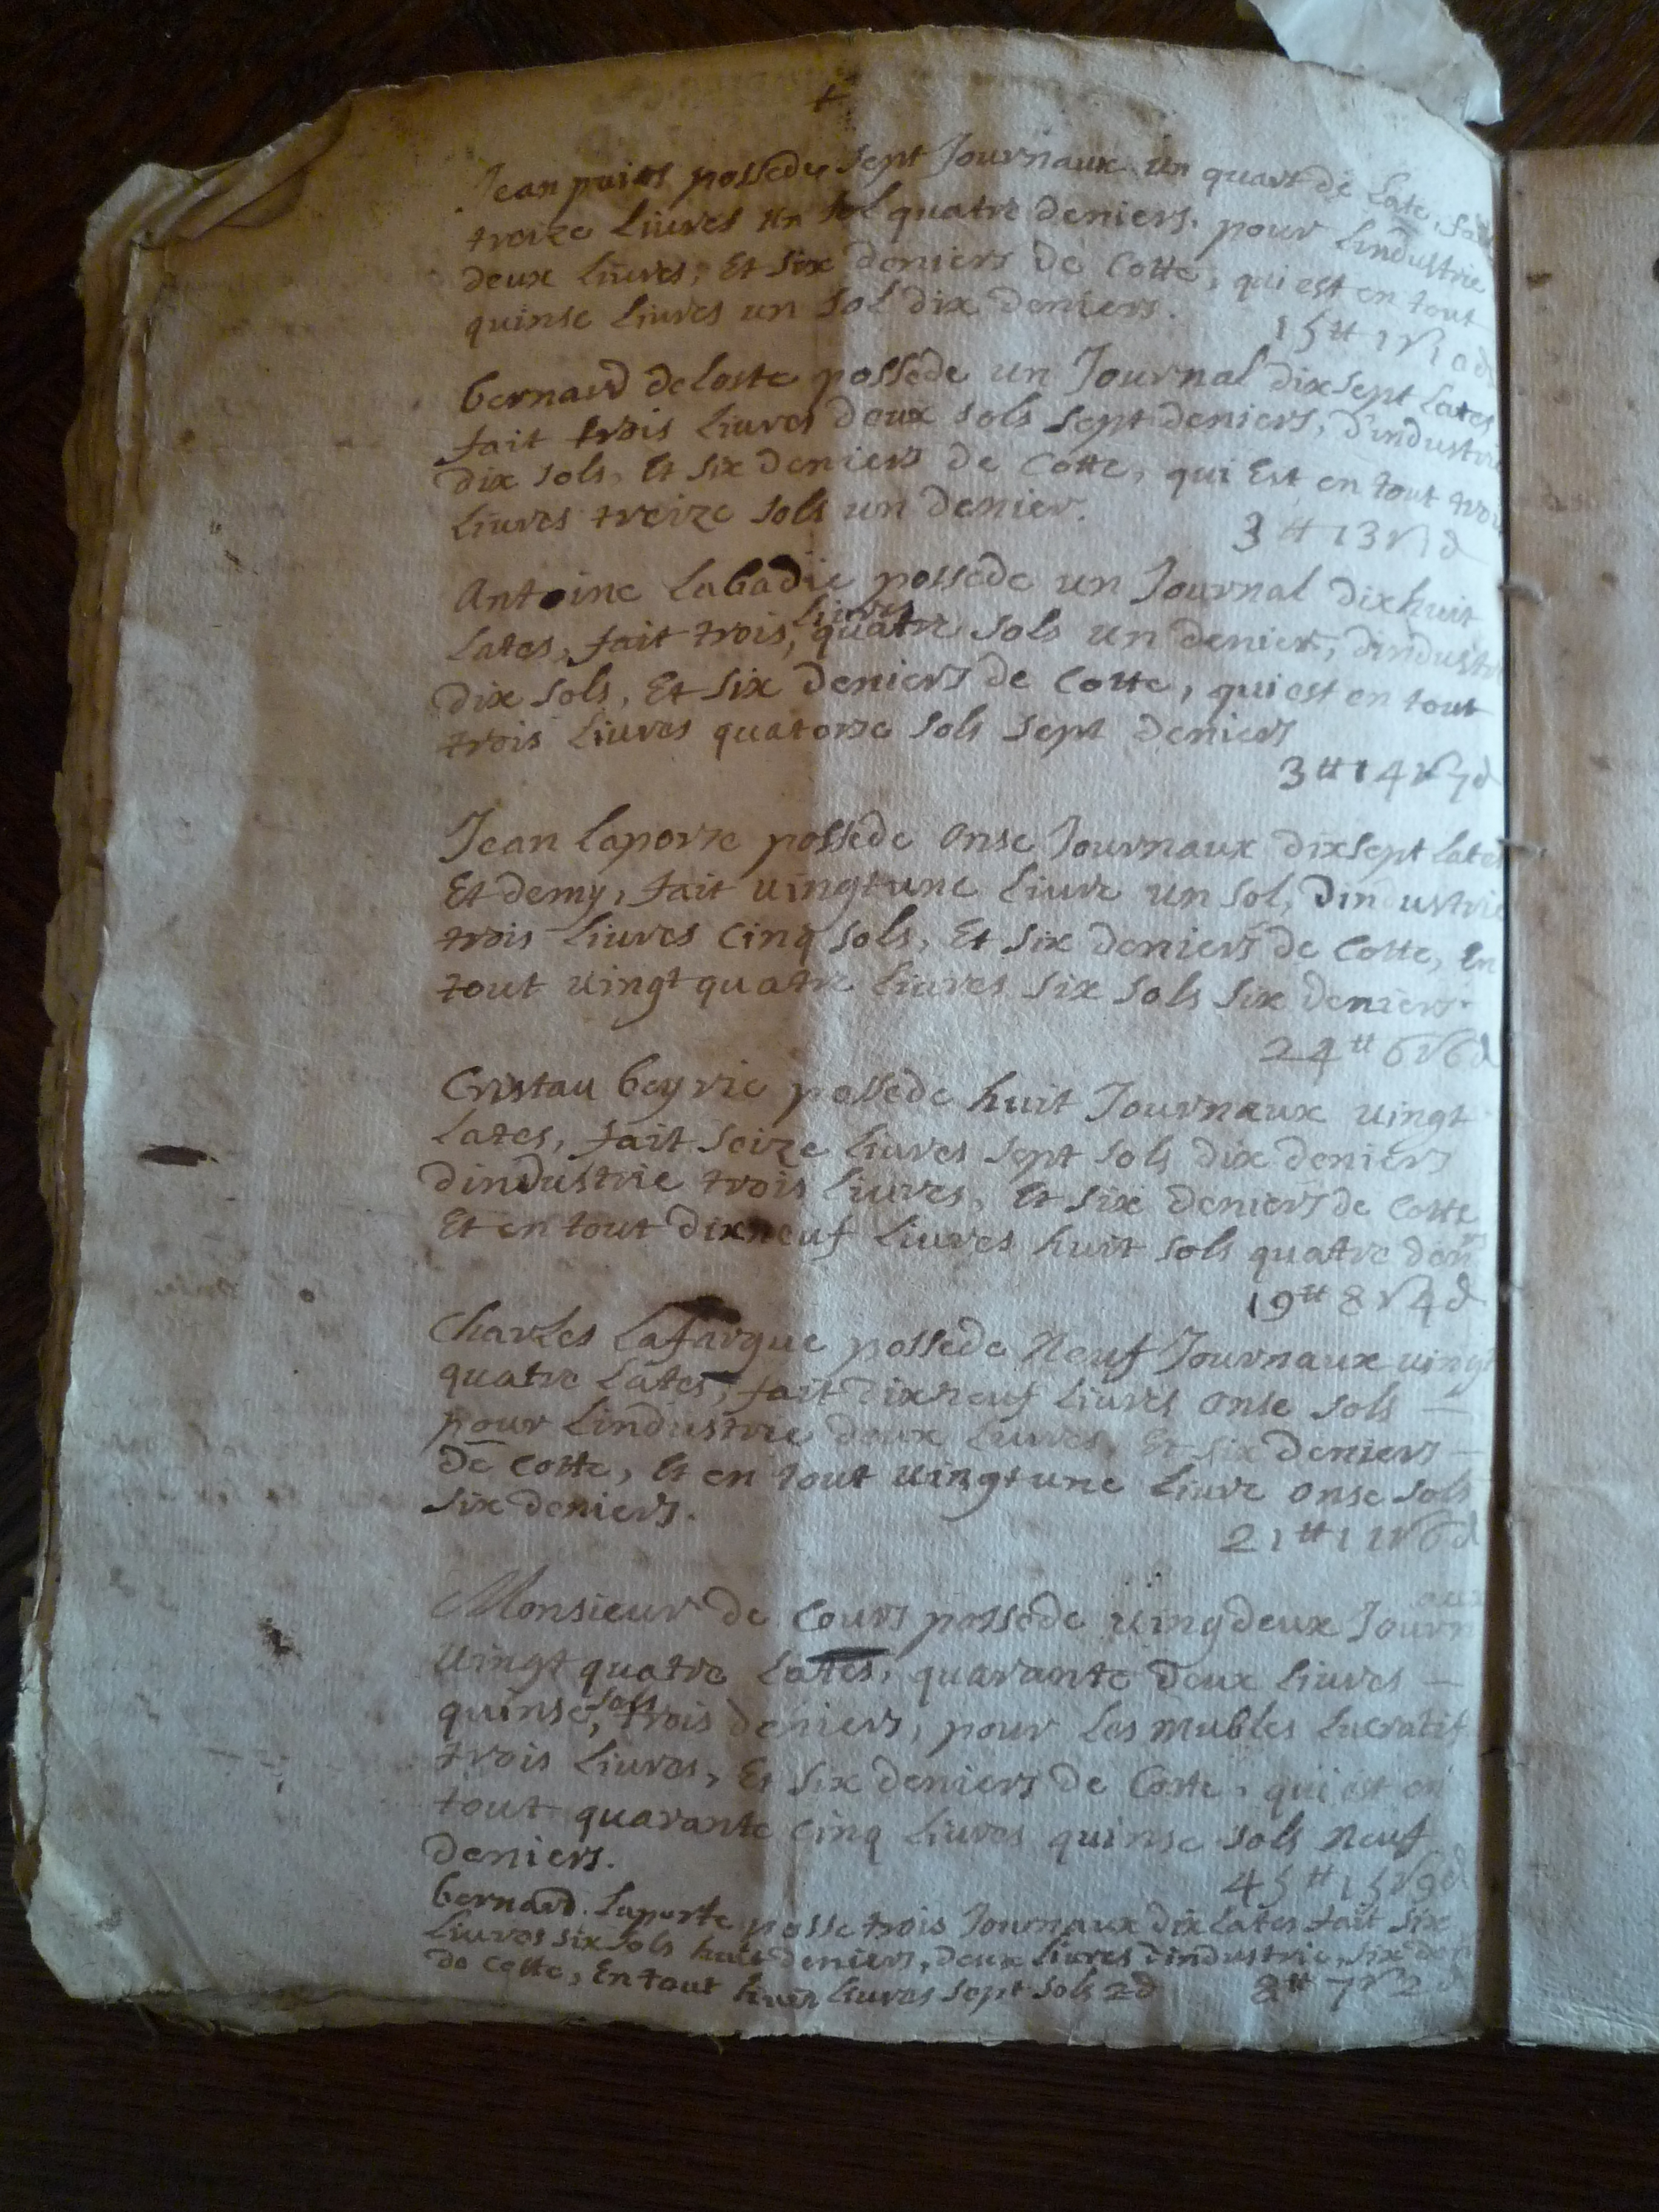 +
Jean puios possede sept Journaux un quart de Late, fait
treize Liures un sol quatre deniers. pour Lindustrie
deux Liures, Et six deniers de Cotte, qui est en tout
quinse Liures un sol dix deniers.
15 tt 1 s 10 d
bernard deloste possede un Journal dixsept Lates
fait trois Liures deux sols sept deniers, d'industrie
dix sols, Et six deniers de Cotte, qui Est en tout trois
Liures treize sols un denier.
3 tt 13 s 1 d
Antoine Labadie possede un Journal dixhuit
Liures
Lates, fait trois, quatre sols un denier, dindustrie
dix sols, Et six deniers de Cotte, qui est en tout
trois Liures quatorse sols sept deniers
3 tt 14 s 7 d
Jean Laporte possede onse Journaux dixsept Lates
Et demy, fait uingtune Liure un sol, dindustrie
trois Liures Cinq sols, Et six deniers de Cotte, En
tout uingt quatre Liures six sols six deniers.
24 tt 6 s 6 d
Cristau beyrie possede huit Journaux uingt
Lates, fait seize Liures sept sols dix deniers
dindustrie trois Liures, Et six deniers de Cotte
Et en tout dixneuf Liures huit sols quatre den rs
19 tt 8 s 4 d
Charles Lafargue possede Neuf Journaux uingt
quatre Lates, fait dixneuf Liures onse sols —
pour Lindustrie deux Liures, Et six deniers —
De Cotte, Et en tout uingtune Liure onse sols
six deniers.
21 tt 11 s 6 d
Monsieur de Cours possede uingdeux Journaux
Uingt quatre Lates, quarante deux Liures —
sols
quinse, trois deniers, pour Les mubles Lucratif
trois Liures, Et six deniers de Cotte, qui est en
tout quarante Cinq Liures quinse sols neuf
deniers.
45 tt 15 s 9 d
bernard Laporte posse trois Journaux dix Lates fait six
Liures six sols huit deniers, deux Liures dindustrie, six den
de Cotte, En tout huit Liures sept sols 2 d 8 tt 7 s 2 d